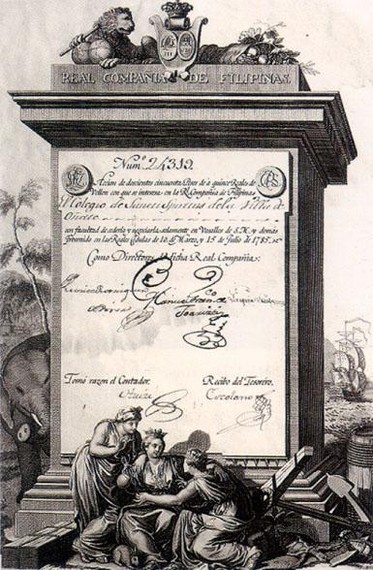 REAL COMPAÑIA DE FILIPINAS
Num.º 24313.
Accion de doscientos cincuenta Pesos de á quince Reales de
Vellon con que se interesa en la Rl. Compañia de Filipinas
Colegio de Sancti Spiritus de la Villa de
Oñate
con facultad de cederla y negociarla solamente en Vasallos de S.M. y demás
prevenido en las Reales cédulas de 10 de Marzo, y 15 de Julio de 1785.
Como Directores de dicha Real Compañia.
Tomó razon el Contador.
Recibo del Tesorero.